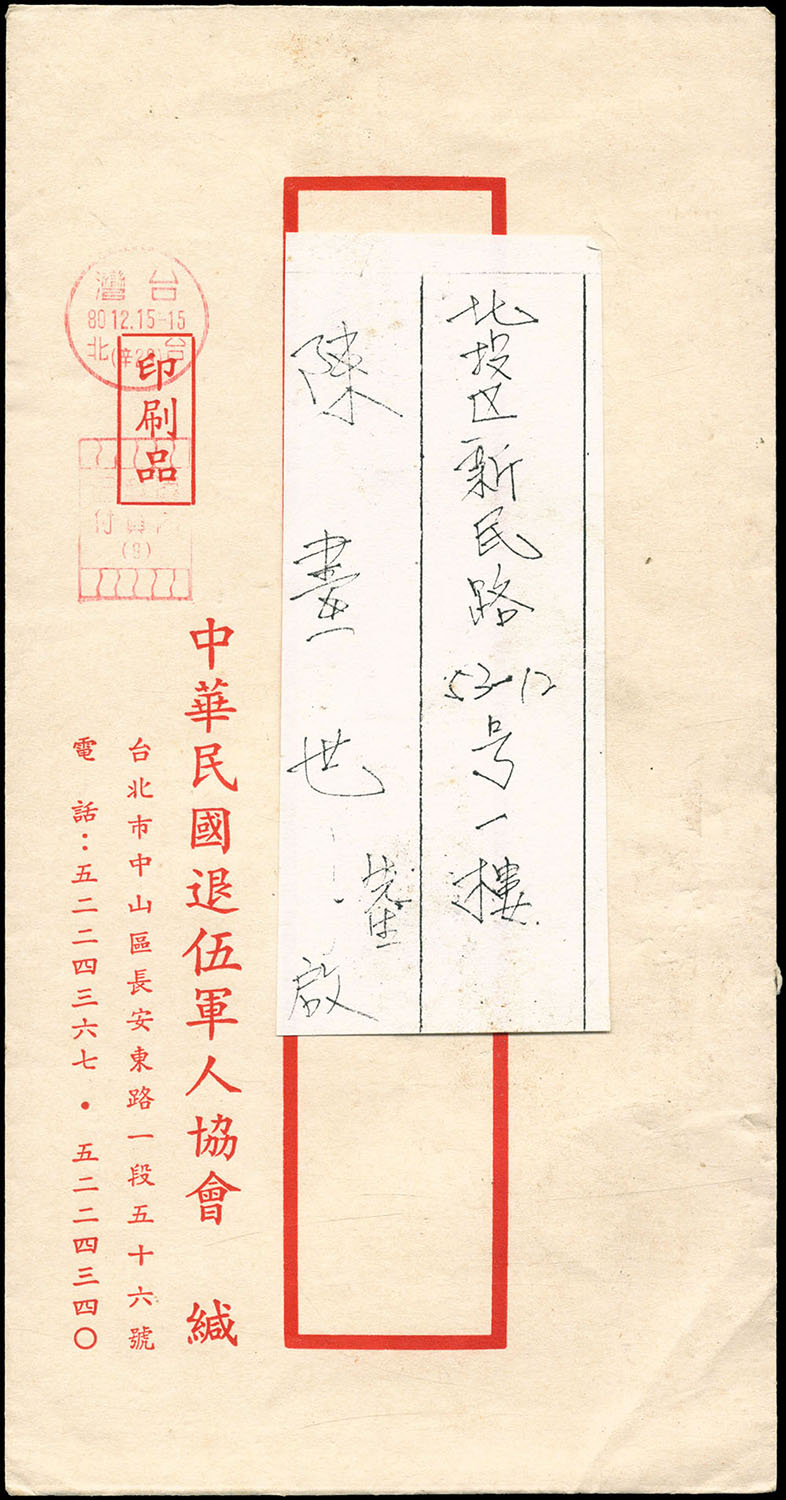 北投区新民路53-12号一樓
陳畫世先生啟
台灣
80.12.15-15
台(辛28)北
印刷品
付
(9)
中華民國退伍軍人協會 緘
台北市中山區長安東路一段五十六號
電話：五二二四三六七・五二二四三四〇